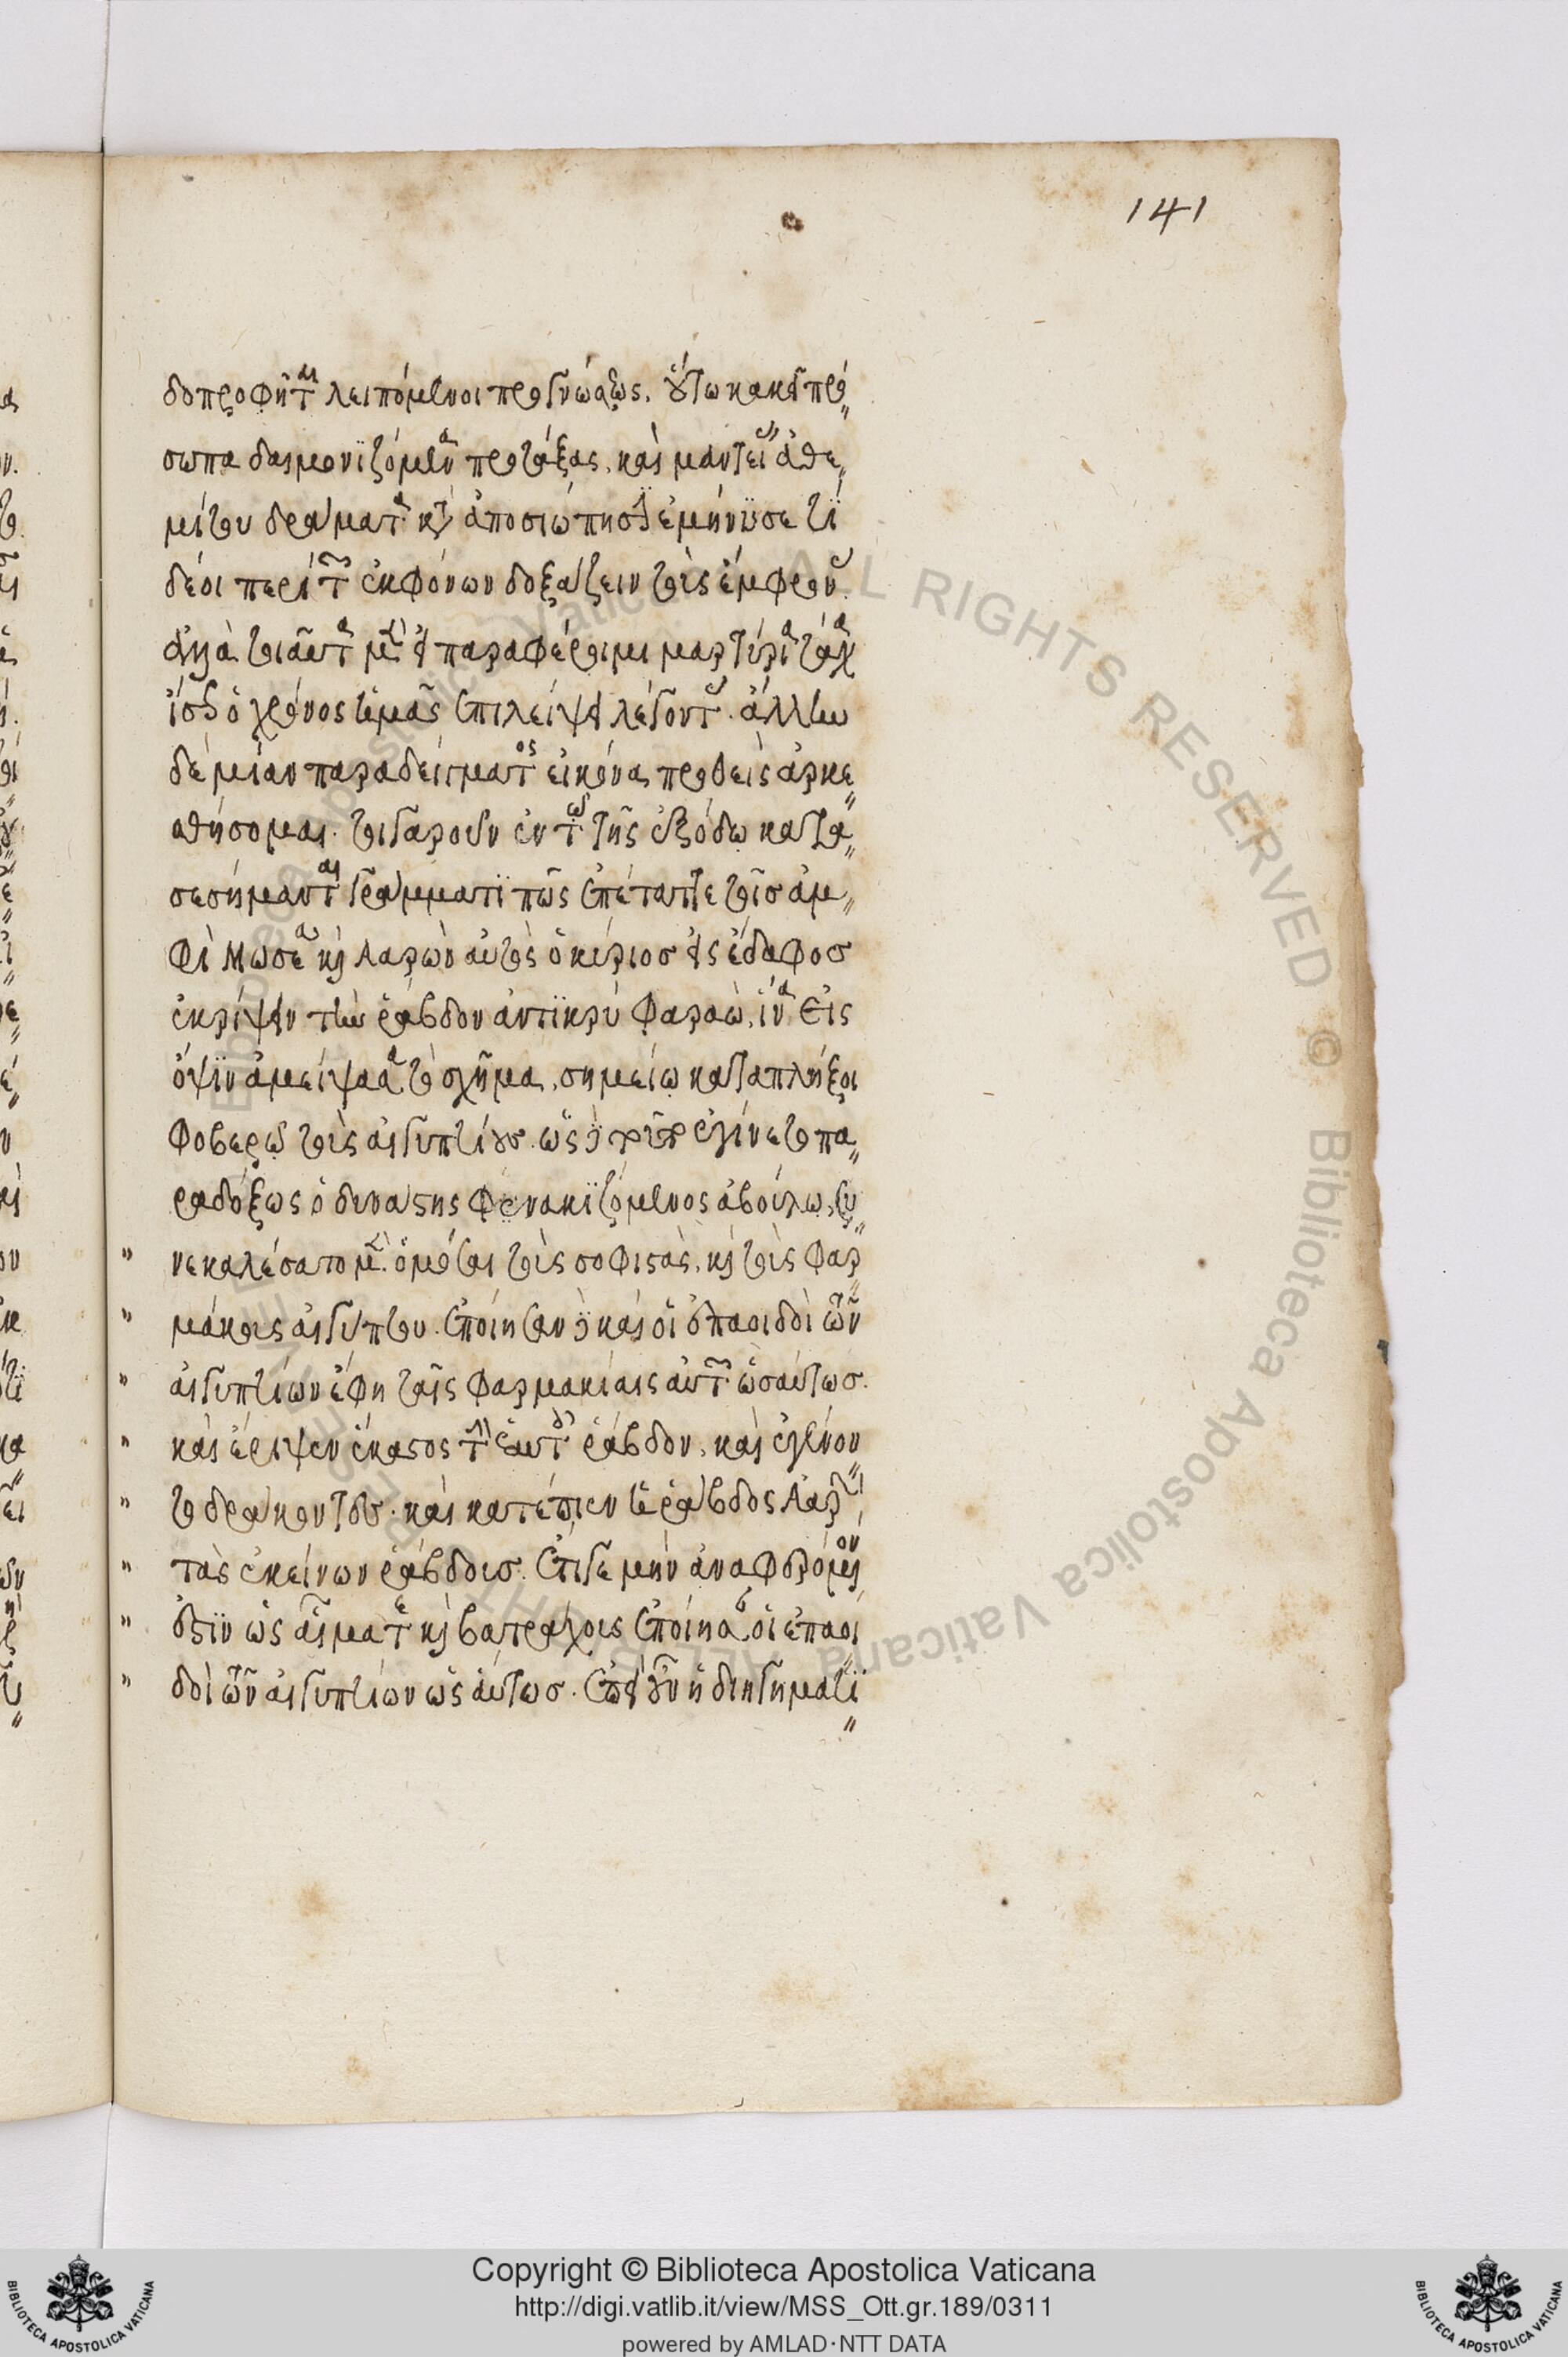 141
δοπροφῆται λειπόμενοι προγνώσεως. οὕτω κἀκεῖ πρό
σωπα δαιμονιζόμενα προτάξας, καὶ μαντείας ἀθε
μίτου δράματα καὶ ἀποσιώπησιν ἐμήνυσε τί
δέοι περὶ τῶν ἐκφόνων δοξάζειν τοῖς ἔμφροσιν.
ἀλλὰ τοιαῦτα μὲν εἰ παραφέροιμι μαρτύρια τάχα
ἴσως ὁ χρόνος ἡμᾶς ἐπιλείψει λέγοντας. ἄλλην
δὲ μίαν παραδείγματος εἰκόνα προθεὶς ἀρκε
σθήσομαι. τοιγαροῦν ἐν τῷ τῆς ἐξόδω κατα
σεσήμανται γράμματι πῶς ἐπέταττε τοῖς ἀμ
φὶ Μωσέα καὶ Ααρὼν αὐτὸς ὁ κύριος εἰς ἔδαφος
ἐκρίψειν τὴν ῥάβδον ἀντικρὺ Φαραὼ, ἵνα εἰς
ὄψιν ἀμείψασα τὸ σχῆμα, σημείω καταπλήξοι
φοβερῷ τοὺς αἰγυπτίους. ὡς δὲ ἐγίνετο πα
ραδόξως ὁ δυνάστης φενακιζόμενος ἀβούλως, συ
" νεκαλέσατο μὲν ὁμόσαι τοὺς σοφιστὰς, καὶ τοὺς φαρ
" μάκους αἰγύπτου. ἐποίησαν δὲ καὶ οἱ ἐπαοιδοὶ τῶν
" αἰγυπτίων ἔφη ταῖς φαρμακίαις αὐτῶν ὡσαύτως.
" καὶ ἔριψεν ἕκαστος τὴν ἑαυτοῦ ῥάβδον, καὶ ἐγένον
" το δράκοντες. καὶ κατέπιεν ἡ ῥάβδος Ααρὼν
" τὰς ἐκείνων ῥάβδους. ἔτι γε μὴν ἀναφερόμενον
" ἐστὶν ὡς αἵματά τε καὶ βατράχους ἐποίησαν οἱ ἐπαοι
" δοὶ τῶν αἰγυπτίων ὡς αὕτως. ἐπεὶ οὖν ἡ διηγήματι
Copyright © Biblioteca Apostolica Vaticana
http://digi.vatlib.it/view/MSS_Ott.gr.189/0311
powered by AMLAD·NTT DATA